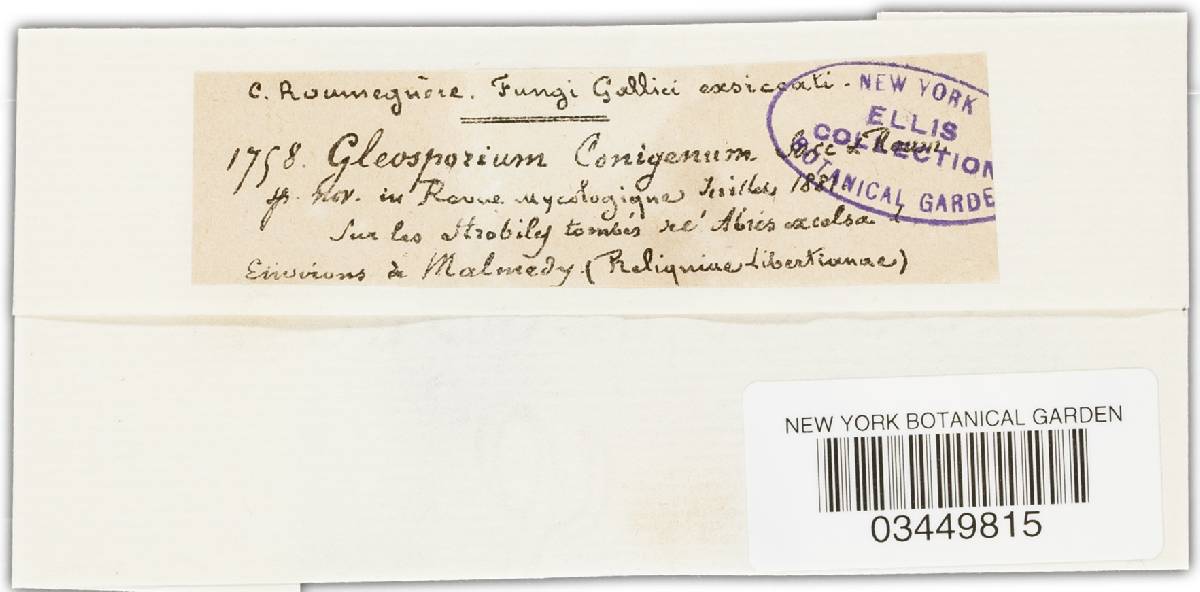 C. Roumeguère. Fungi Gallici exsiccati.
1758. Gleosporium Conigenum Sacc & Roum
sp. nov. in Revue mycologique Juillet 1881
Sur les Strobiles tombés de Abies excelsa
Environs de Malmedy. (Reliquiae Libertianae)
NEW YORK
ELLIS
COLLECTION
BOTANICAL GARDE
NEW YORK BOTANICAL GARDEN
03449815